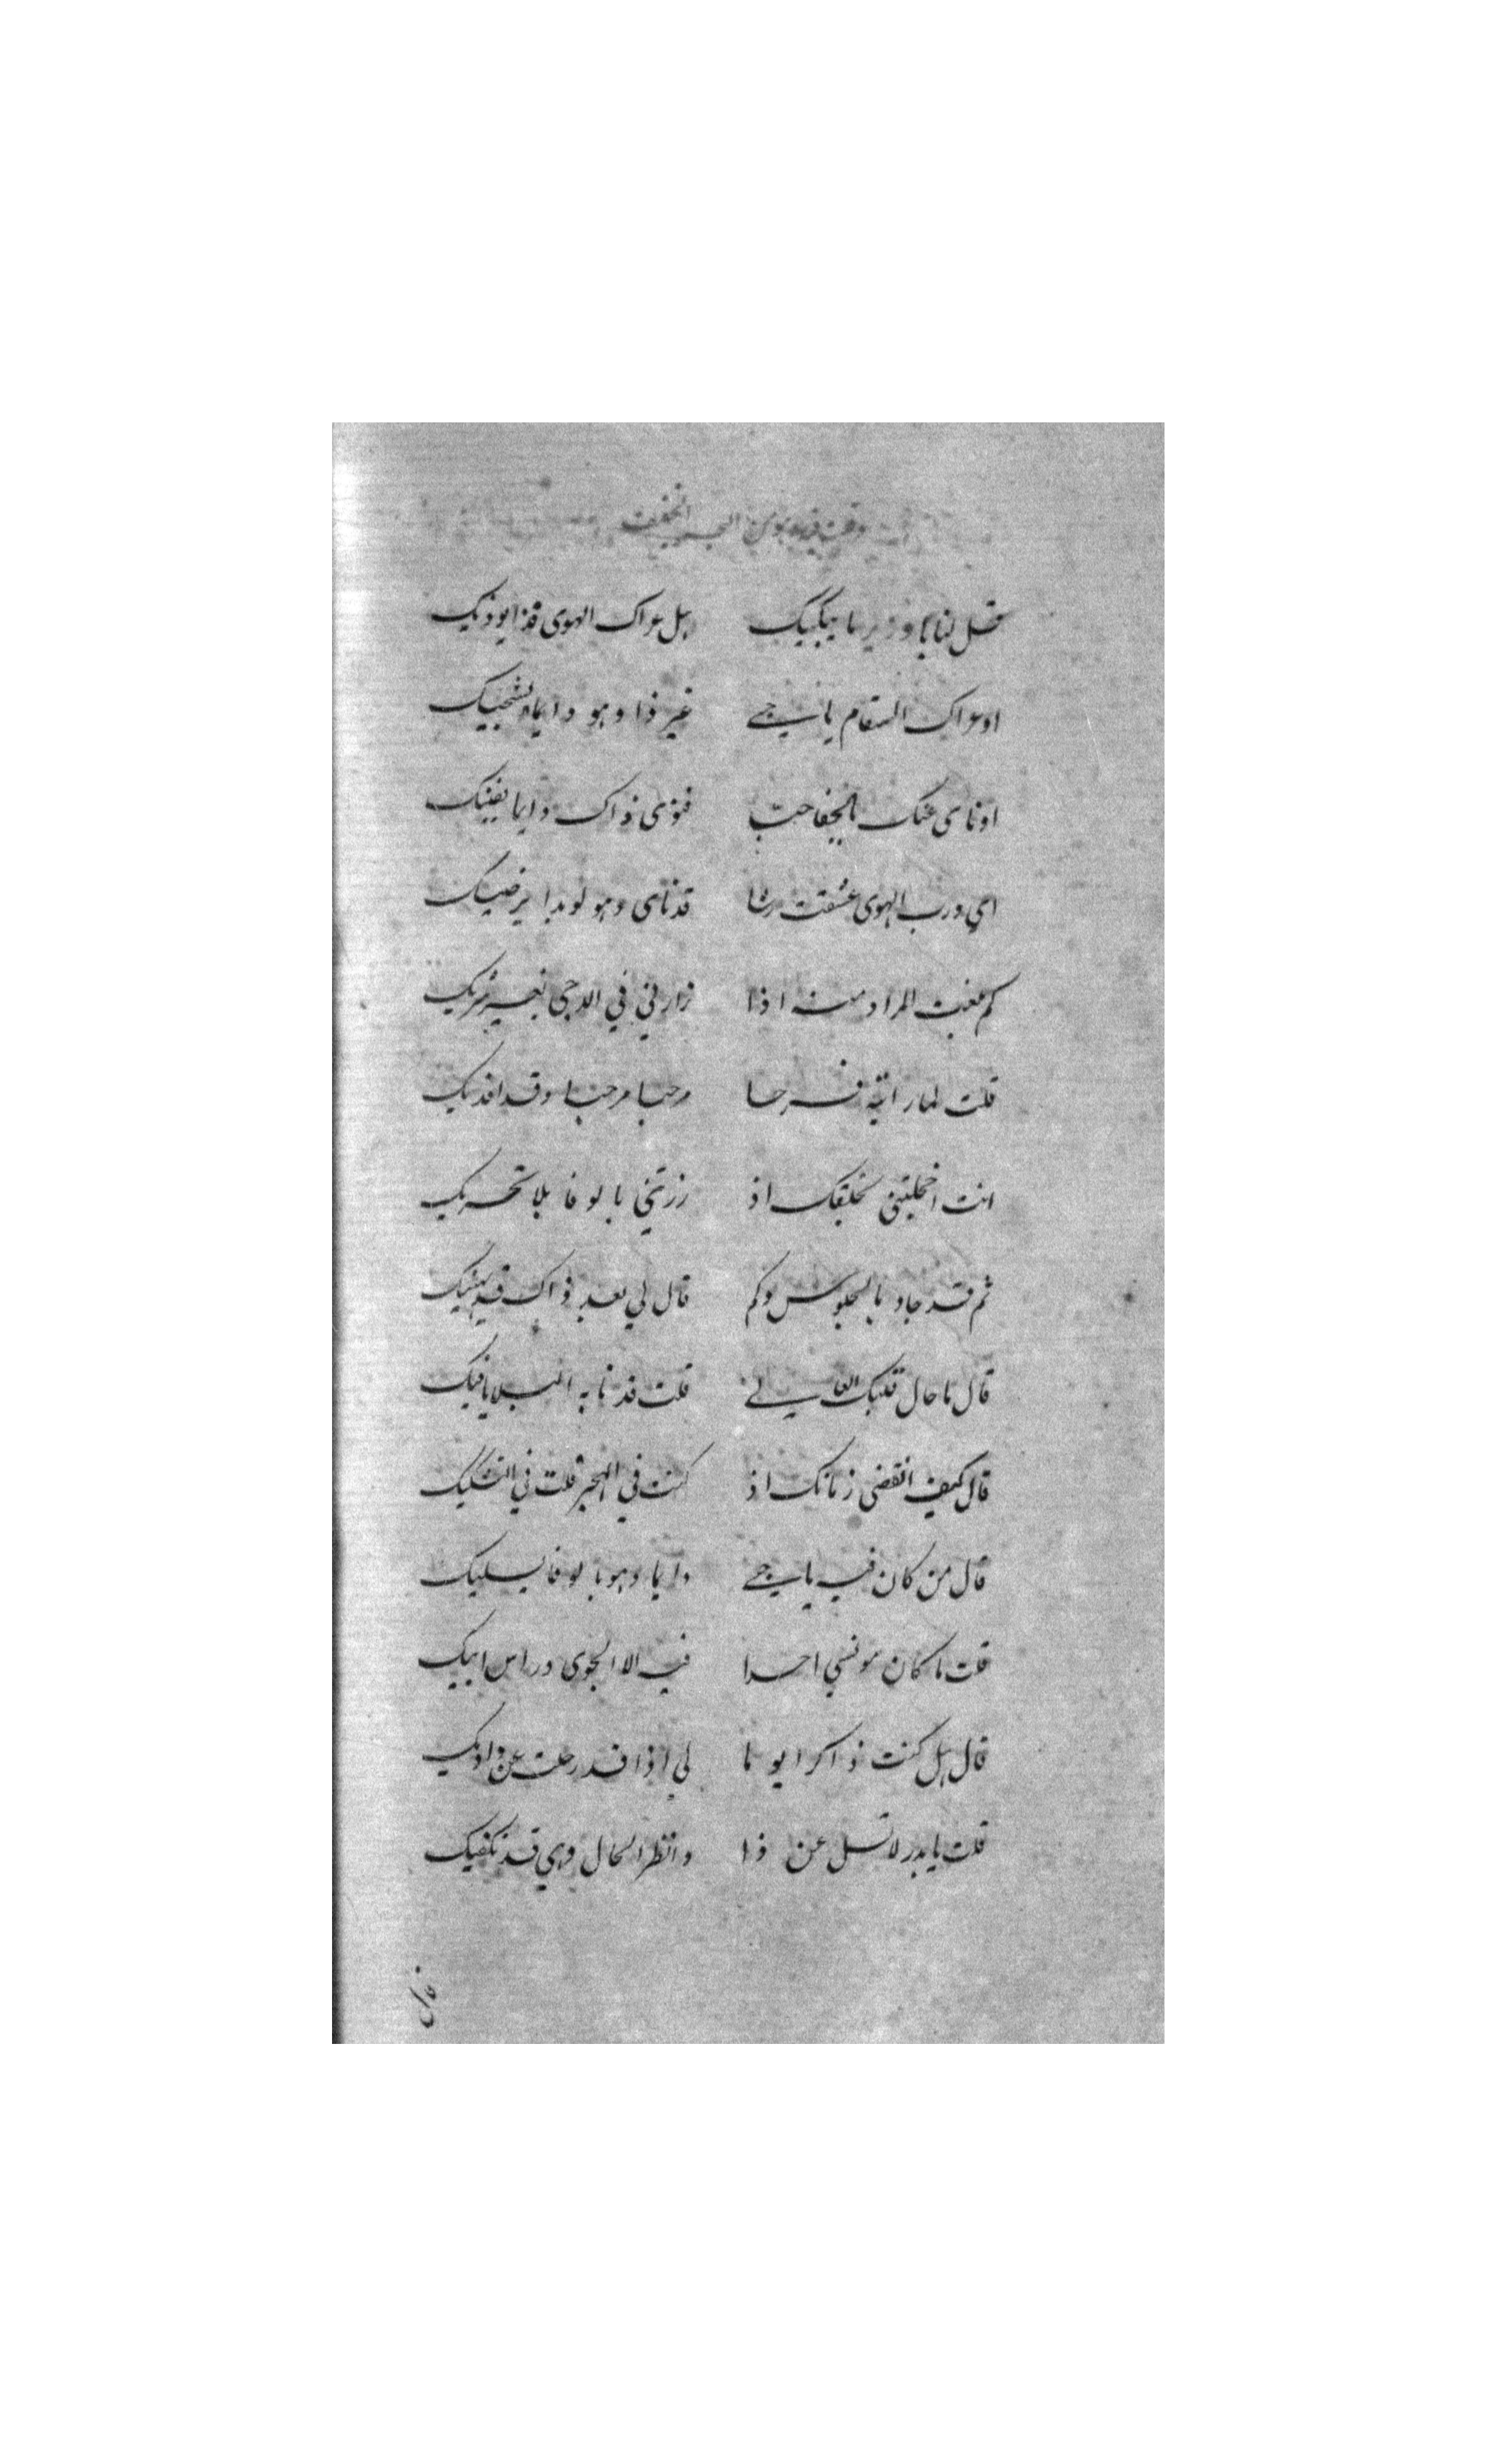 وقلت فيه وهو من البحر الخفيف
قل لنا يا وزير ما يبكيك هل عراك الهوى فذا يوذيك
او عراك السقام يا سيدي غير ذا وهو دايما يشجيك
او ناى عنك بالجفا حب فنوى ذاك دايما يفنيك
اي ورب الهوى عشقت رشا قد ناى وهو لو بدا يرضيك
كم بلغت المراد منه اذا زارني في الدجى بغير شريك
قلت لما رايته فرحا مرحبا مرحبا وقد افديك
انت اخجلتني بخلقك اذ زرتني بالوفا بلا تحريك
ثم قد جاد بالجلوس وكم قال لي بعد ذاك قد يهنيك
قال ما حال قلبك قلت قد نابه البلا يا فيك
قال كيف انقضى زمانك اذ كنت في الهجر قلت في التشكيك
قال من كان فيه يا دايما وهو بالوفا يسليك
قلت ما كان مونسي احدا فيه الا الجوى وراس ابيك
قال هل كنت ذاكرا يوما لي اذا قد رحلت عن واديك
قلت يا بدر لا تسل عن ذا وانظر الحال وهي قد تكفيك
قال